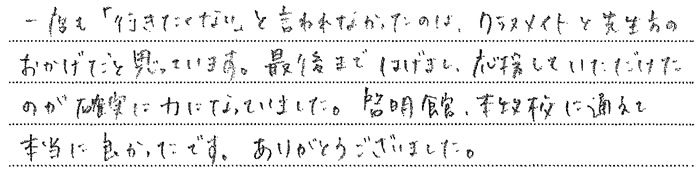 一度も「行きたくない」と言われなかったのは、クラスメイトと先生方の
おかげだと思っています。最後まではげまし、応援していただけた
のが確実に力になっていました。啓明館、本牧校に通えて
本当に良かったです。ありがとうございました。